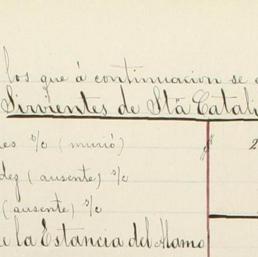 los que á continuacion se
Sirvientes de Stā Catali
s/c (murió) 2
dez (ausente) s/c
(ausente) s/c
e la Estancia del Alamo